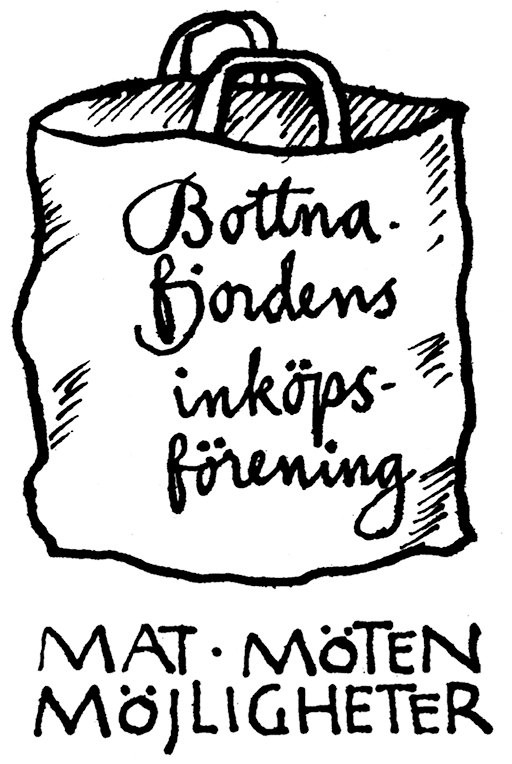 Bottna-
fjordens
inköps-
förening
MAT · MÖTEN
MÖJLIGHETER